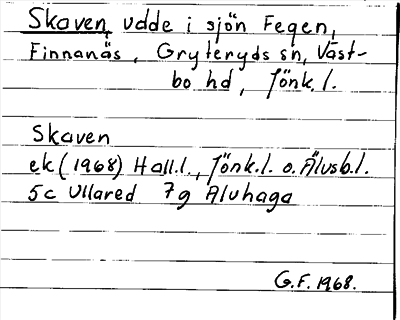 Skaven, udde i sjön Fegen,
Finnanäs, Gryteryds sn, Väst-
bo hd, Jönk. l.
Skaven
ek (1968) Hall.l., Jönk.l. o. Älvsb.l.
5c Ullared 7g Aluhaga
G.F. 1968.